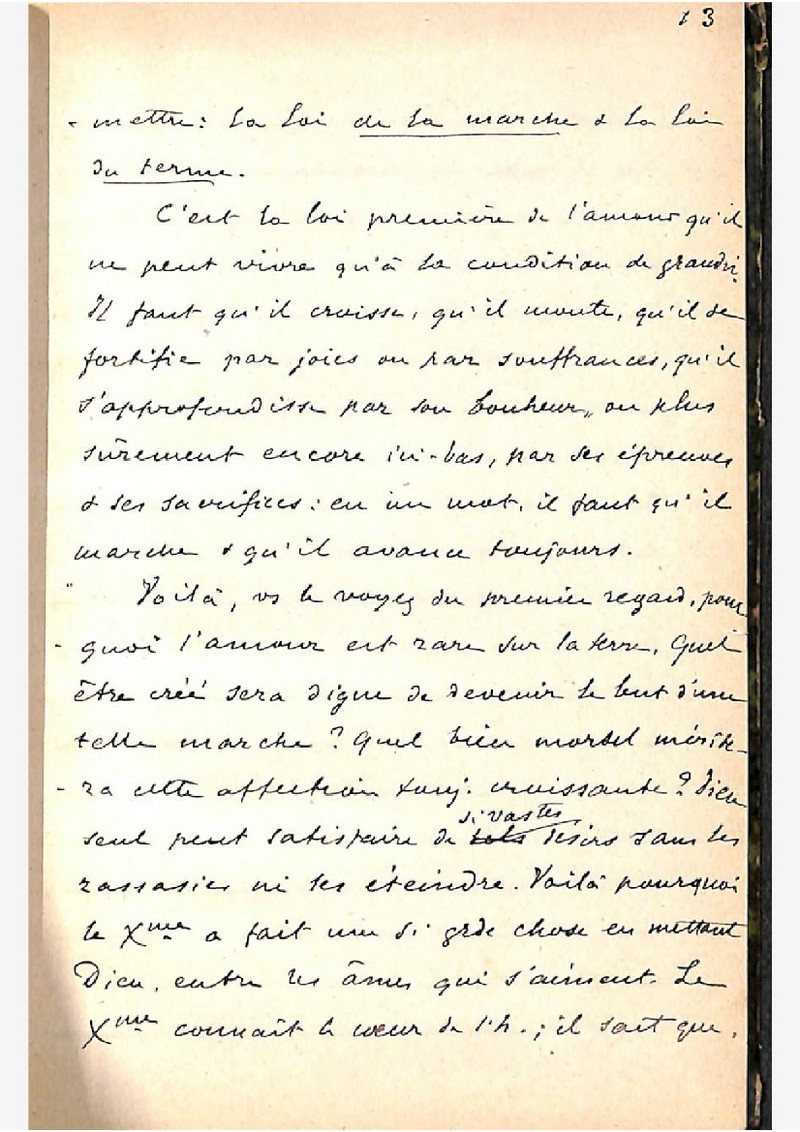 13
- mettre : la loi de la marche & la loi
du terme.
C'est la loi première de l'amour qu'il
ne peut vivre qu'à la condition de grandir.
Il faut qu'il croisse, qu'il monte, qu'il se
fortifie par joies ou par souffrances, qu'il
s'approfondisse par son bonheur, ou plus
sûrement encore ici-bas, par ses épreuves
& ses sacrifices : en un mot, il faut qu'il
marche & qu'il avance toujours.
Voilà, vs le voyez du premier regard, pour
- quoi l'amour est rare sur la terre. Quel
être créé sera digne de devenir le but d'une
telle marche ? Quel bien mortel mérite-
- ra cette affection touj. croissante ? Dieu
si vastes
seul peut satisfaire de tels désirs sans les
rassasier ni les éteindre. Voilà pourquoi
le Xme a fait une si grde chose en mettant
Dieu, entre les âmes qui s'aiment. Le
Xme connaît le cœur de l'h. ; il sait que,